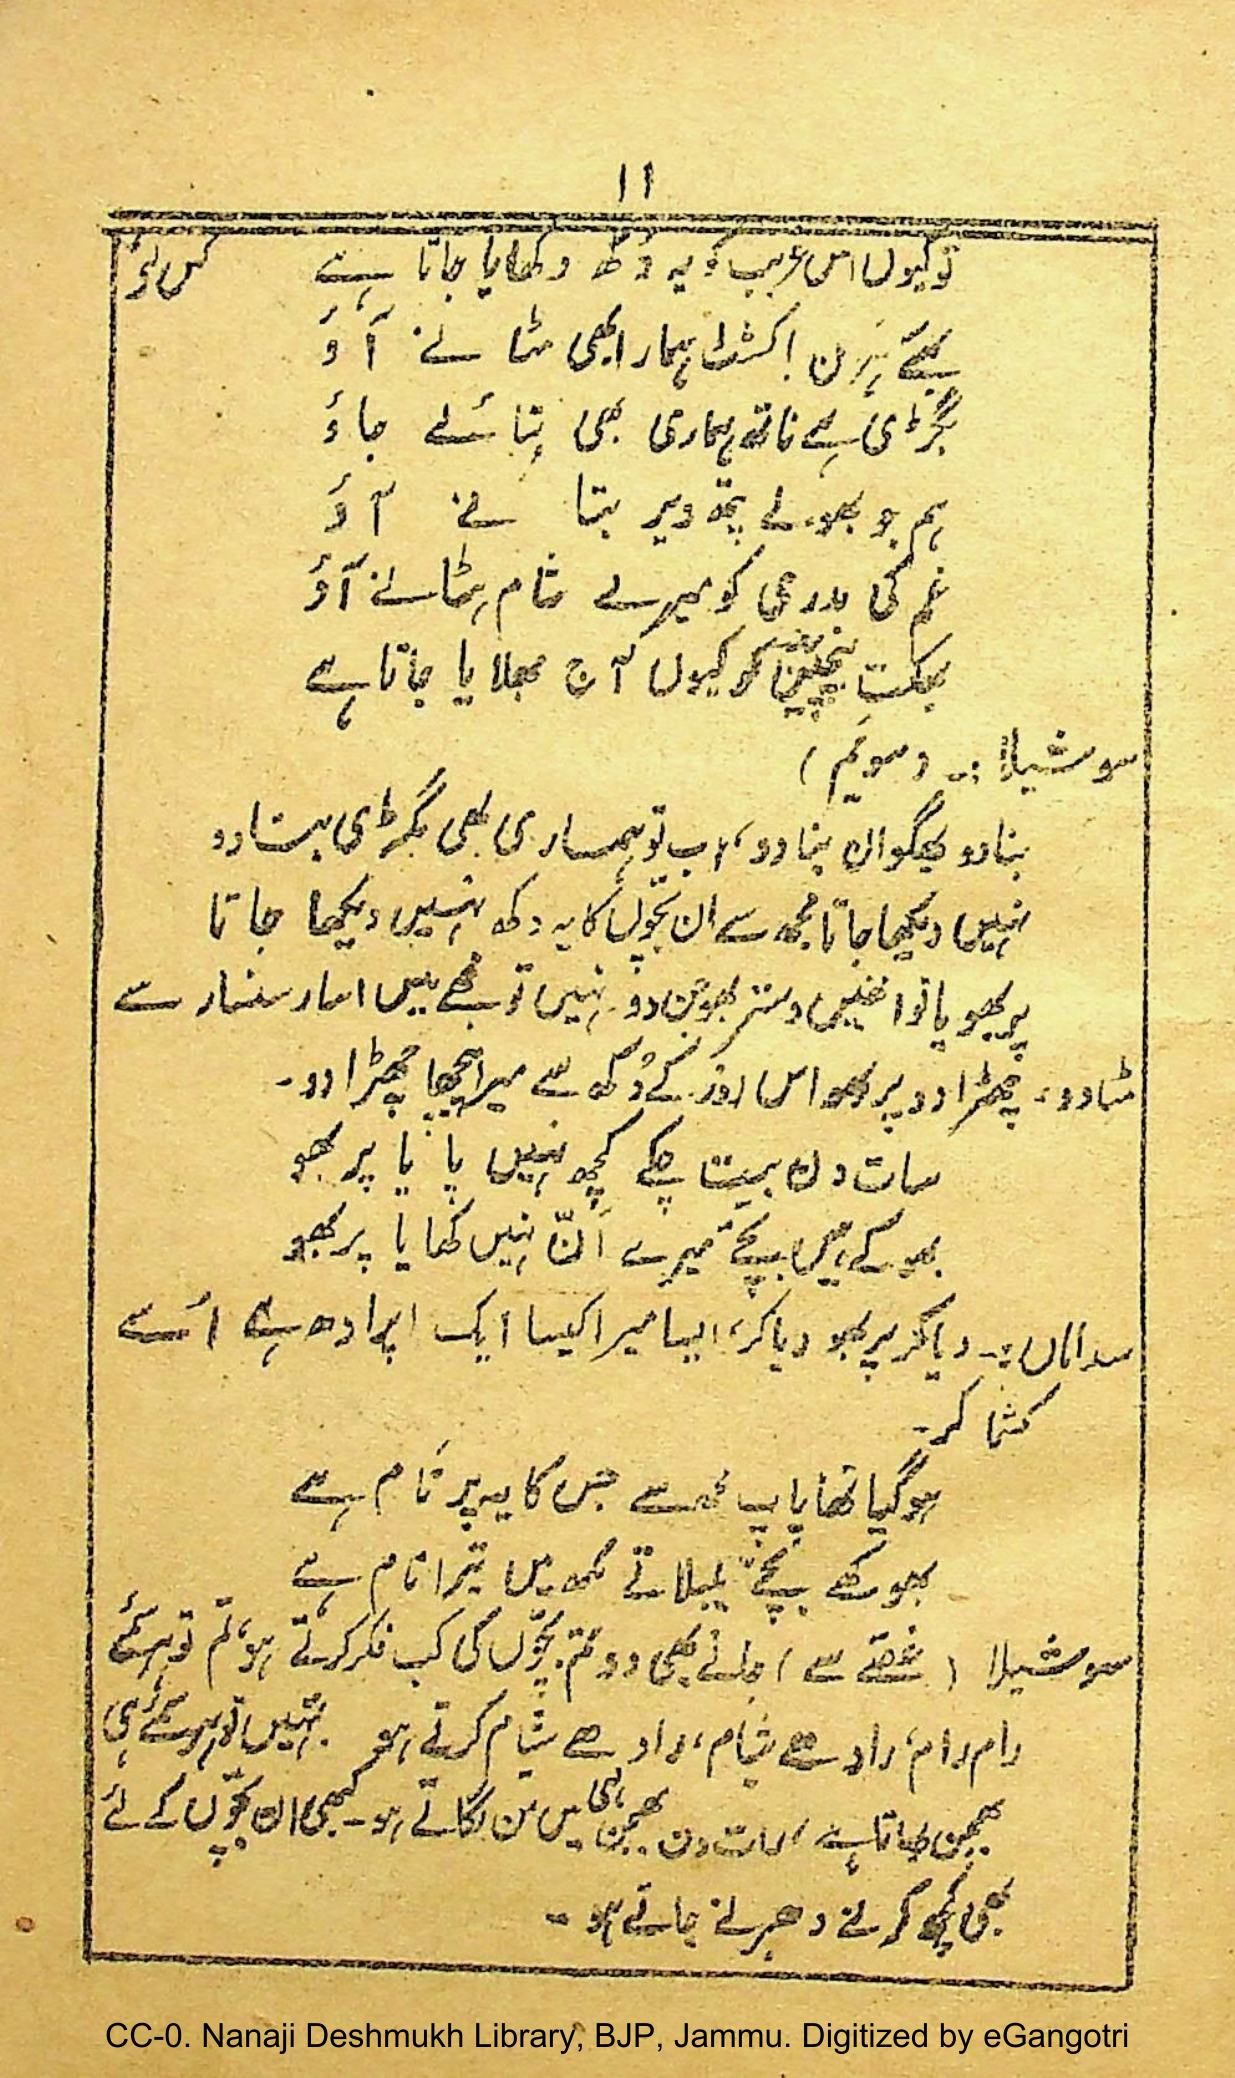 ۱۱
تو کیوں اس غریب کو یہ دُکھ دکھایا جاتا ہے کس لئے
ہَرن کشٹ ہمارا بھی مٹا نے آؤ
بگڑی ہے ناتھ ہماری بھی بنائے جاؤ
ہم جو بھولے پتھ ویر بتا نے آؤ
غم کی بدرعی کو میرے شام ہٹانے آؤ
بھکت کو کیوں آج بھلا یا جاتا ہے
سوشیلا :۔ (سویَم)
بنادو بھگوان بنا دو، اب تو ہمساری بھی بگڑی بنادو
نہیں دیکھا جاتا مجھ سے ان بچّوں کا یہ دکھ نہیں دیکھا جا تا
پربھو یا تو انھیں وستر بھوجن دو نہیں تو مجھے ہیں اسار سنسار سے
مٹادو۔ چھڑا دو پربھو اس روز کے دُکھ سے میرا پیچھا چھڑا دو۔
سات دن بیت چکے کچھ نہیں پا یا پر بھو
بھوکے ہیں بچّے میرے اَنّ نہیں کھا یا پربھو
سداماں :۔ دیا کر پربھو دیا کر، ایسا میرا کیسا ایک اپرادھ ہے اُسے
کشما کر۔
ہوگیا تھا پاپ مجھ سے جس کا یہ پرنام ہے
بھوکھے بچّے بلبلاتے مکھ میں تیرا نام ہے
سوشیلا (غصّے سے) جانے بھی دو تم بچّوں کی کب فکر کرتے ہو، تم تو ہر سمئے
رام رام، رادھے شیام، رادھے شیام کرتے ہو۔ تمہیں تو ہر سمئے ہی
بھجن بھاتا ہے، رات دن بھجن ہی میں من لگاتے ہو۔ کبھی ان بچّوں کے لئے
بھی کچھ کرنے دھرنے جاتے ہو۔
CC-0. Nanaji Deshmukh Library, BJP, Jammu. Digitized by eGangotri